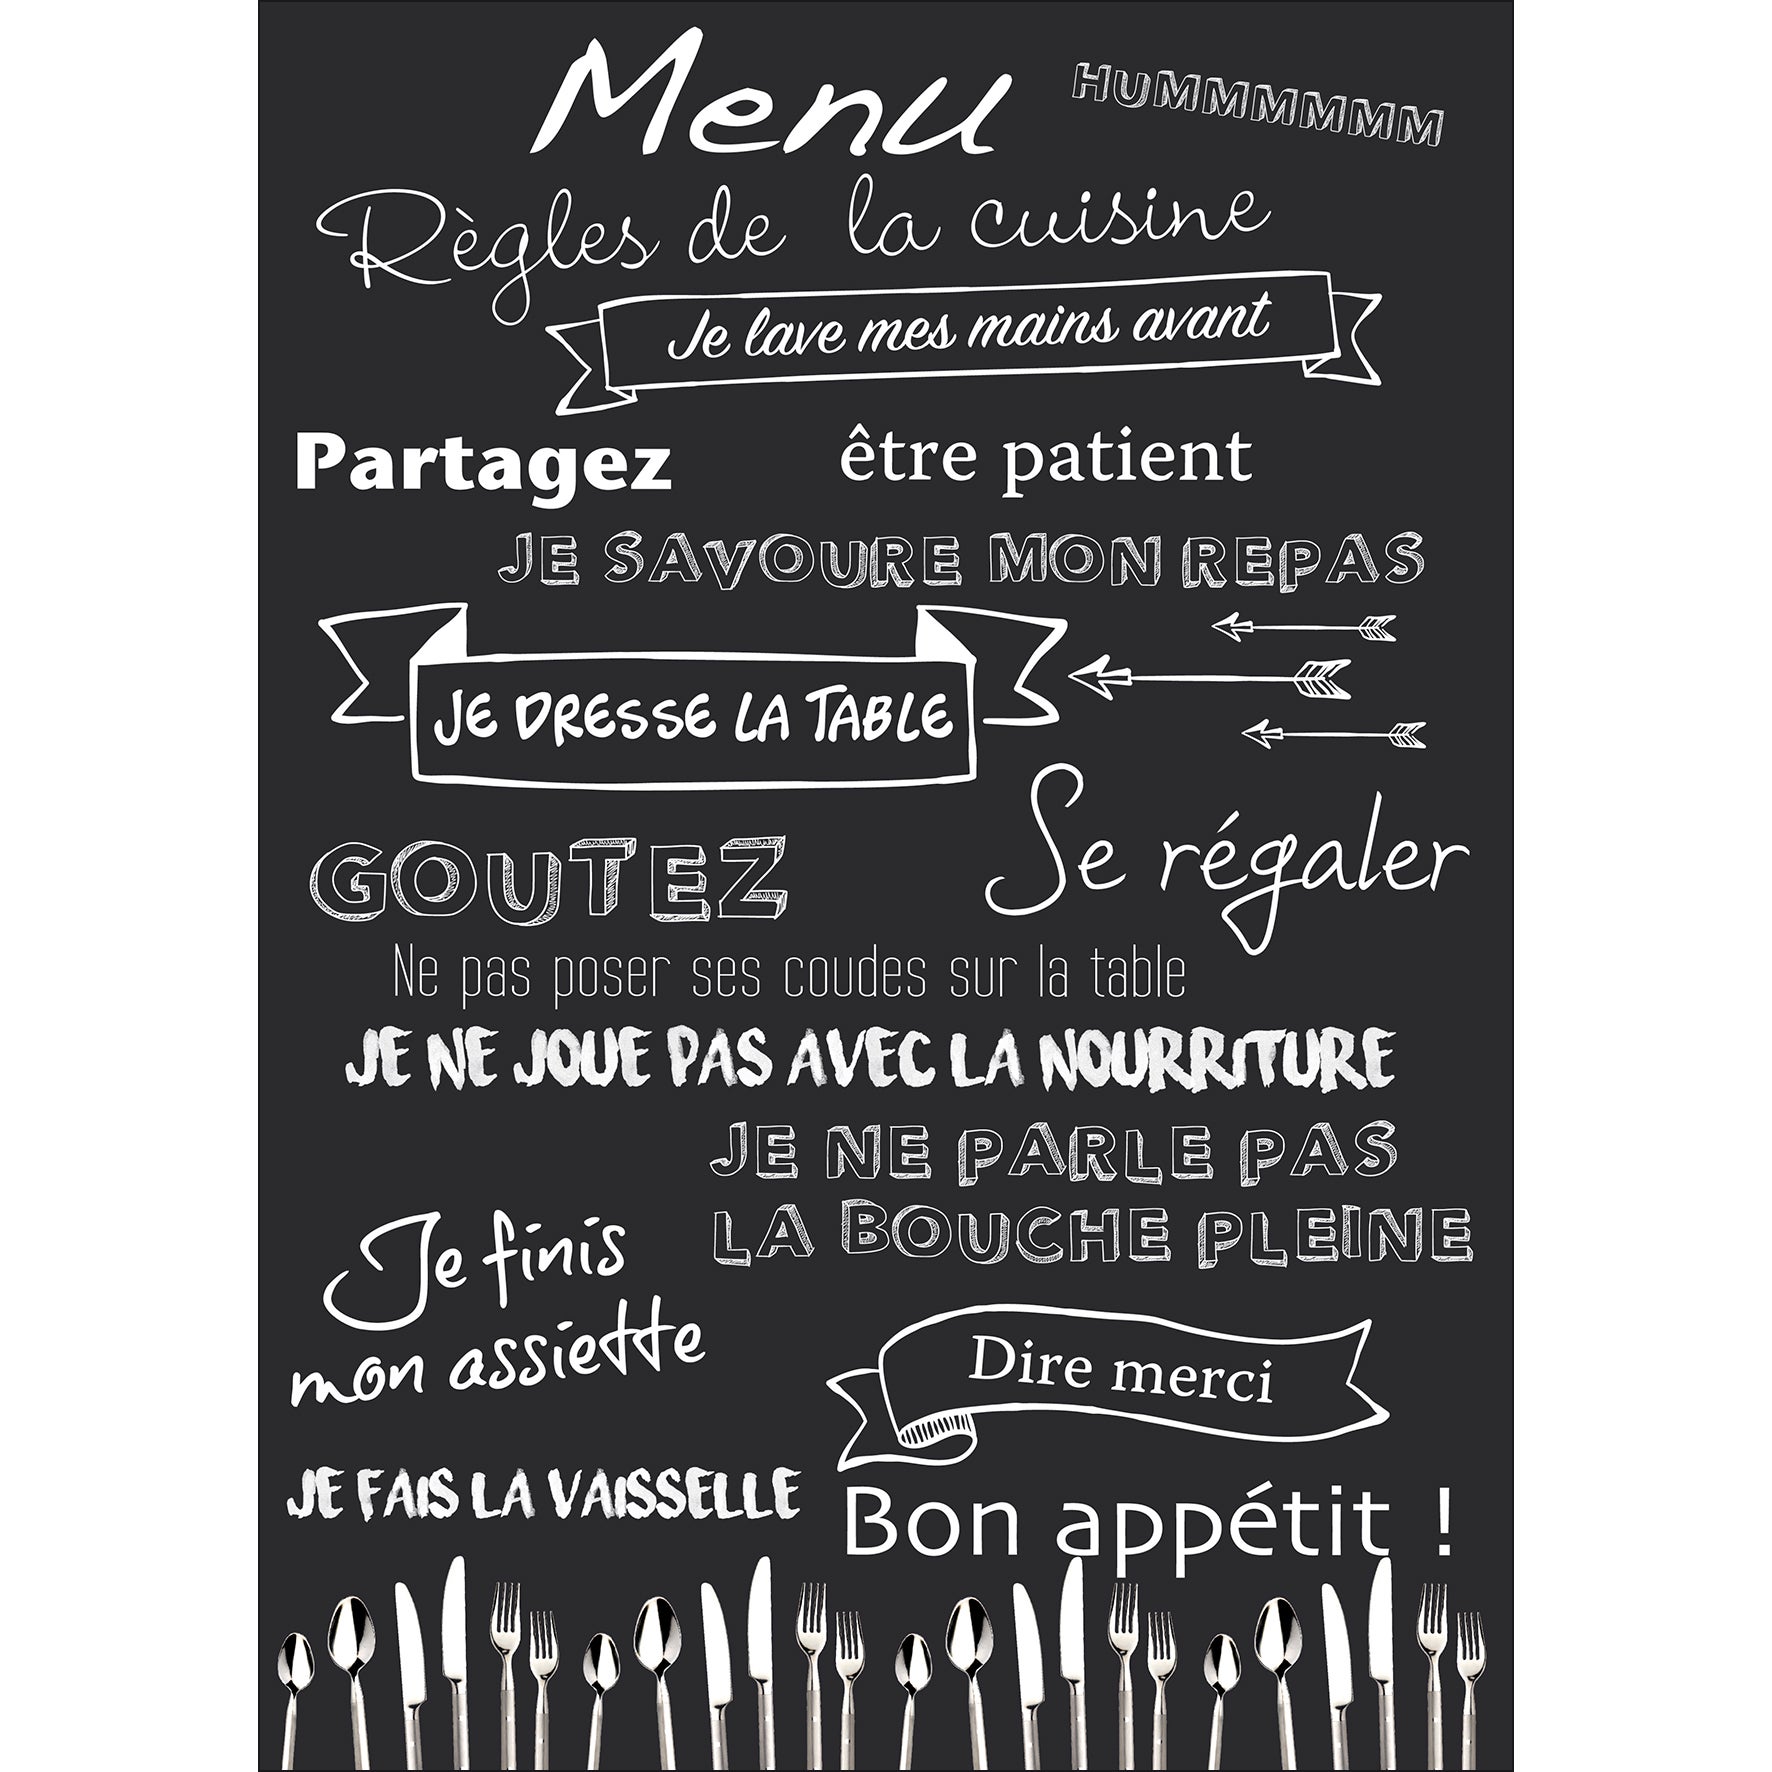 Menu
HUMMMMMMM
Règles de la cuisine
Je lave mes mains avant
Partagez
être patient
JE SAVOURE MON REPAS
JE DRESSE LA TABLE
Se régaler
GOUTEZ
Ne pas poser ses coudes sur la table
JE NE JOUE PAS AVEC LA NOURRITURE
JE NE PARLE PAS
LA BOUCHE PLEINE
Je finis
mon assiette
Dire merci
JE FAIS LA VAISSELLE
Bon appétit !